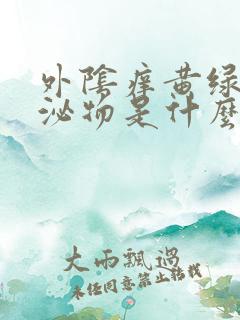 外陰痒黄绿
泌物是什麼
大雨飄過
未经同意禁止转载